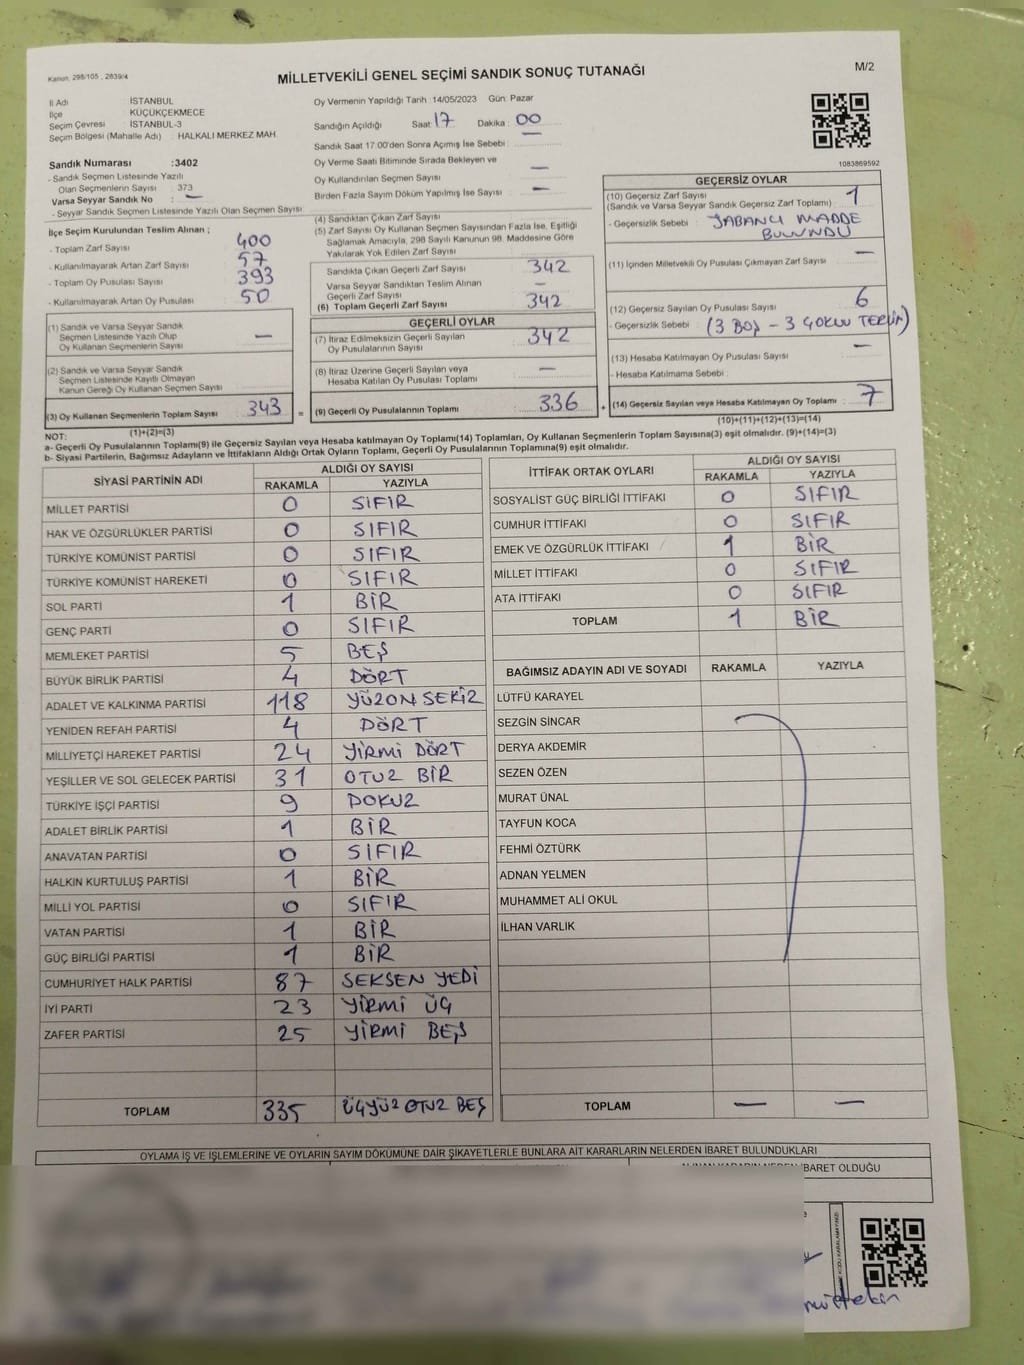 Kanun: 298/105, 2839/4
MİLLETVEKİLİ GENEL SEÇİMİ SANDIK SONUÇ TUTANAĞI
M/2
İl Adı İSTANBUL
İlçe KÜÇÜKÇEKMECE
Seçim Çevresi İSTANBUL-3
Seçim Bölgesi (Mahalle Adı) : HALKALI MERKEZ MAH.
Sandık Numarası :3402
- Sandık Seçmen Listesinde Yazılı
Olan Seçmenlerin Sayısı : 373
Varsa Seyyar Sandık No : —
- Seyyar Sandık Seçmen Listesinde Yazılı Olan Seçmen Sayısı
İlçe Seçim Kurulundan Teslim Alınan ;
- Toplam Zarf Sayısı 400
- Kullanılmayarak Artan Zarf Sayısı 57
- Toplam Oy Pusulası Sayısı 393
- Kullanılmayarak Artan Oy Pusulası 50
(1) Sandık ve Varsa Seyyar Sandık
Seçmen Listesinde Yazılı Olup
Oy Kullanan Seçmenlerin Sayısı —
(2) Sandık ve Varsa Seyyar Sandık
Seçmen Listesinde Kayıtlı Olmayan
Kanun Gereği Oy Kullanan Seçmen Sayısı
(3) Oy Kullanan Seçmenlerin Toplam Sayısı 343 =
(1)+(2)=(3)
Oy Vermenin Yapıldığı Tarih :14/05/2023 Gün: Pazar
Sandığın Açıldığı Saat: 17 Dakika: 00
Sandık Saat 17:00'den Sonra Açımış İse Sebebi : —
Oy Verme Saati Bitiminde Sırada Bekleyen ve
Oy Kullandırılan Seçmen Sayısı —
Birden Fazla Sayım Döküm Yapılmış İse Sayısı : —
(4) Sandıktan Çıkan Zarf Sayısı
(5) Zarf Sayısı Oy Kullanan Seçmen Sayısından Fazla İse, Eşitliği
Sağlamak Amacıyla, 298 Sayılı Kanunun 98. Maddesine Göre
Yakılarak Yok Edilen Zarf Sayısı
Sandıkta Çıkan Geçerli Zarf Sayısı 342
Varsa Seyyar Sandıktan Teslim Alınan
Geçerli Zarf Sayısı —
(6) Toplam Geçerli Zarf Sayısı 342
GEÇERLİ OYLAR
(7) İtiraz Edilmeksizin Geçerli Sayılan
Oy Pusulalarının Sayısı 342
(8) İtiraz Üzerine Geçerli Sayılan veya
Hesaba Katılan Oy Pusulası Toplamı —
(9) Geçerli Oy Pusulalarının Toplamı 336 +
1083869592
GEÇERSİZ OYLAR
(10) Geçersiz Zarf Sayısı
(Sandık ve Varsa Seyyar Sandık Geçersiz Zarf Toplamı) : 1
- Geçersizlik Sebebi : YABANCI MADDE
BULUNDU
(11) İçinden Milletvekili Oy Pusulası Çıkmayan Zarf Sayısı —
(12) Geçersiz Sayılan Oy Pusulası Sayısı 6
- Geçersizlik Sebebi : (3 BOŞ - 3 ÇOKLU TERCİH)
(13) Hesaba Katılmayan Oy Pusulası Sayısı —
- Hesaba Katılmama Sebebi :
(14) Geçersiz Sayılan veya Hesaba Katılmayan Oy Toplamı : 7
(10)+(11)+(12)+(13)=(14)
NOT:
a- Geçerli Oy Pusulalarının Toplamı(9) ile Geçersiz Sayılan veya Hesaba katılmayan Oy Toplamı(14) Toplamları, Oy Kullanan Seçmenlerin Toplam Sayısına(3) eşit olmalıdır. (9)+(14)=(3)
b- Siyasi Partilerin, Bağımsız Adayların ve İttifakların Aldığı Ortak Oyların Toplamı, Geçerli Oy Pusulalarının Toplamına(9) eşit olmalıdır.
SİYASİ PARTİNİN ADI ALDIĞI OY SAYISI
RAKAMLA YAZIYLA
MİLLET PARTİSİ 0 SIFIR
HAK VE ÖZGÜRLÜKLER PARTİSİ 0 SIFIR
TÜRKİYE KOMÜNİST PARTİSİ 0 SIFIR
TÜRKİYE KOMÜNİST HAREKETİ 0 SIFIR
SOL PARTİ 1 BİR
GENÇ PARTİ 0 SIFIR
MEMLEKET PARTİSİ 5 BEŞ
BÜYÜK BİRLİK PARTİSİ 4 DÖRT
ADALET VE KALKINMA PARTİSİ 118 YÜZON SEKİZ
YENİDEN REFAH PARTİSİ 4 DÖRT
MİLLİYETÇİ HAREKET PARTİSİ 24 YİRMİ DÖRT
YEŞİLLER VE SOL GELECEK PARTİSİ 31 OTUZ BİR
TÜRKİYE İŞÇİ PARTİSİ 9 DOKUZ
ADALET BİRLİK PARTİSİ 1 BİR
ANAVATAN PARTİSİ 0 SIFIR
HALKIN KURTULUŞ PARTİSİ 1 BİR
MİLLİ YOL PARTİSİ 0 SIFIR
VATAN PARTİSİ 1 BİR
GÜÇ BİRLİĞİ PARTİSİ 1 BİR
CUMHURİYET HALK PARTİSİ 87 SEKSEN YEDİ
İYİ PARTİ 23 YİRMİ ÜÇ
ZAFER PARTİSİ 25 YİRMİ BEŞ
TOPLAM 335 ÜÇYÜZ OTUZ BEŞ
İTTİFAK ORTAK OYLARI ALDIĞI OY SAYISI
RAKAMLA YAZIYLA
SOSYALİST GÜÇ BİRLİĞİ İTTİFAKI 0 SIFIR
CUMHUR İTTİFAKI 0 SIFIR
EMEK VE ÖZGÜRLÜK İTTİFAKI 1 BİR
MİLLET İTTİFAKI 0 SIFIR
ATA İTTİFAKI 0 SIFIR
TOPLAM 1 BİR
BAĞIMSIZ ADAYIN ADI VE SOYADI RAKAMLA YAZIYLA
LÜTFÜ KARAYEL
SEZGİN SİNCAR
DERYA AKDEMİR
SEZEN ÖZEN
MURAT ÜNAL
TAYFUN KOCA
FEHMİ ÖZTÜRK
ADNAN YELMEN
MUHAMMET ALİ OKUL
İLHAN VARLIK
TOPLAM — —
OYLAMA İŞ VE İŞLEMLERİNE VE OYLARIN SAYIM DÖKÜMÜNE DAİR ŞİKAYETLERLE BUNLARA AİT KARARLARIN NELERDEN İBARET BULUNDUKLARI
İBARET OLDUĞU